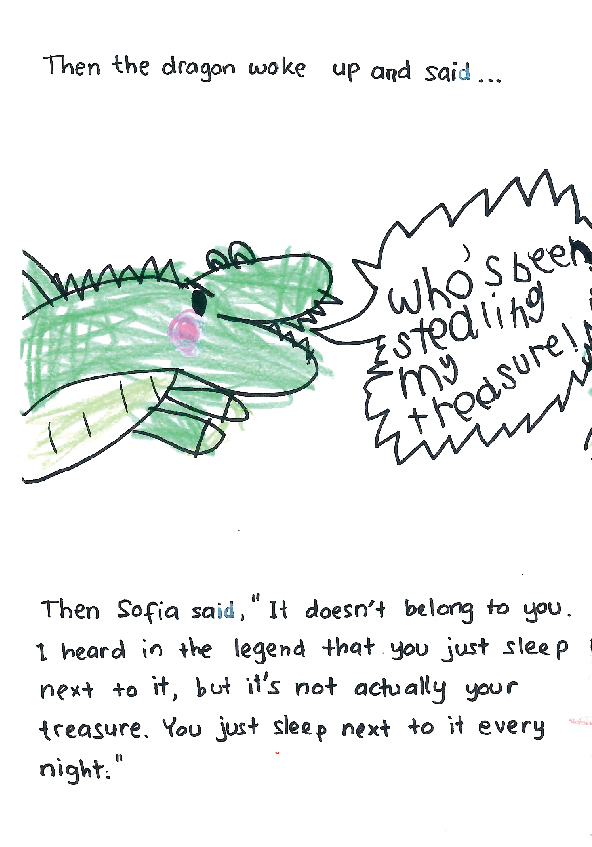 Then the dragon woke up and said...
who's been
stealing
my
treasure!
Then Sofia said, "It doesn't belong to you.
I heard in the legend that you just sleep
next to it, but it's not actually your
treasure. You just sleep next to it every
night."